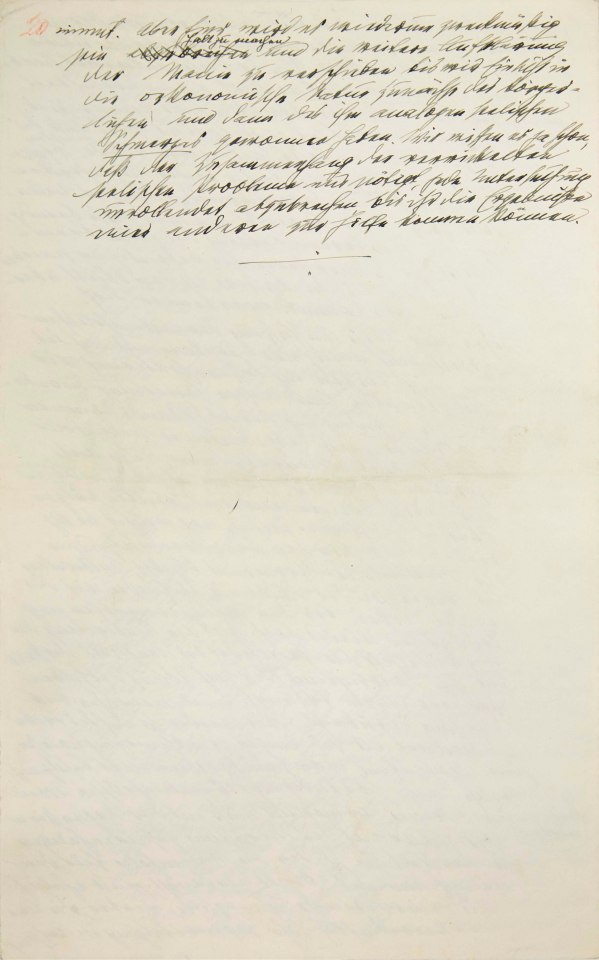 20 nimmt. Aber hier wird es wiederum zweckmäßig
halt zu machen
sein und die weitere Aufklärung
der Manie zu verschieben bis wir Einsicht in
die oekonomische Natur zunächst des körper-
lichen und dann des ihm analogen seelischen
Schmerzes gewonnen haben. Wir wissen es ja schon,
daß der Zusammenhang der verwickelten
seelischen Probleme uns nötigt, jede Untersuchung
unvollendet abzubrechen bis ihr die Ergebnisse
einer anderen zur Hilfe kommen können.